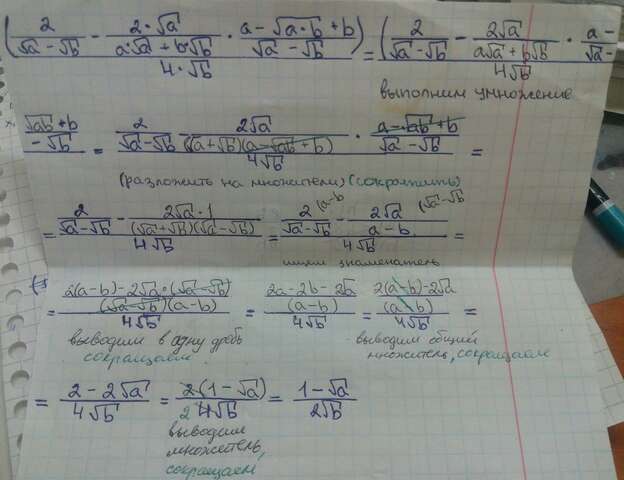 (2/(√a − √b) − (2·√a)/(a·√a + b·√b) · (a − √(a·b) + b)/(√a − √b))/(4·√b) = (2/(√a − √b) − (2√a)/(a√a + b√b) · (a −)/(√a −)/(4√b)
выполним умножение
(√ab + b)/(− √b) = (2/(√a − √b) − (2√a)/((√a + √b)(a − √ab + b)) · (a − √ab + b)/(√a − √b))/(4√b) =
(разложить на множители) (сократить)
= (2/(√a − √b) − (2√a·1)/((√a + √b)(√a − √b)))/(4√b) = (2/(√a − √b) (a − b − (2√a)/(a − b) (√a − √b)/(4√b) =
ищем знаменатель
= ((2(a − b) − 2√a·(√a − √b))/((√a − √b)(a − b)))/(4√b) = ((2a − 2b − 2√a)/(a − b))/(4√b) = ((2(a − b) − 2√a)/(a − b))/(4√b) =
выводим в одну дробь
сокращаем
выводим общий
множитель, сокращаем
= (2 − 2√a)/(4√b) = (2·(1 − √a))/(2 4√b) = (1 − √a)/(2√b)
выводим
множетель,
сокращаем